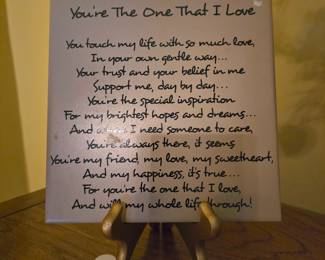 You're The One That I Love
You touch my life with so much love,
In your own gentle way...
Your trust and your belief in me
Support me, day by day...
You're the special inspiration
For my brightest hopes and dreams...
And when I need someone to care,
You're always there, it seems
You're my friend, my love, my sweetheart,
And my happiness, it's true....
For you're the one that I love,
And will my whole life through!